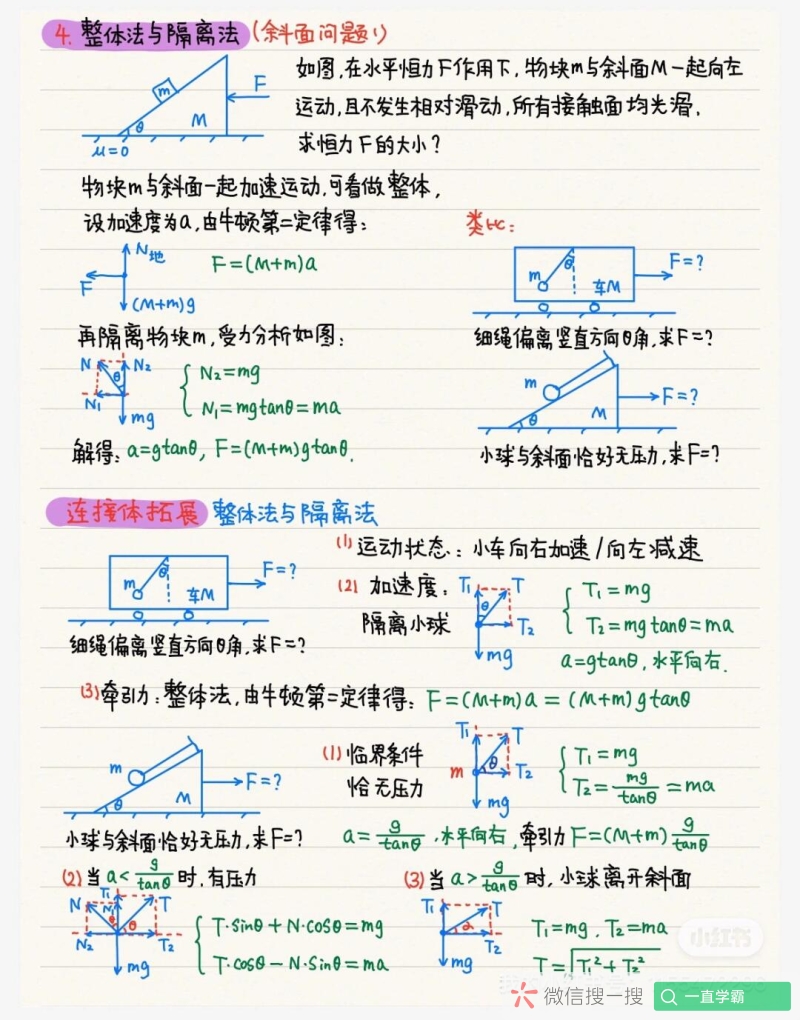 4. 整体法与隔离法(斜面问题1)
如图,在水平恒力F作用下,物块m与斜面M一起向左
运动,且不发生相对滑动,所有接触面均光滑.
求恒力F的大小?
m
F
M
θ
μ=0
物块m与斜面一起加速运动,可看做整体,
设加速度为a,由牛顿第二定律得:
N地
F
(M+m)g
F=(M+m)a
再隔离物块m,受力分析如图:
N
N₂
θ
N₁
mg
N₂=mg
N₁=mgtanθ=ma
解得: a=gtanθ, F=(M+m)gtanθ.
类比:
θ
m
车M
F=?
细绳偏离竖直方向θ角,求F=?
m
θ
M
F=?
小球与斜面恰好无压力,求F=?
连接体拓展 整体法与隔离法
θ
m
车M
F=?
细绳偏离竖直方向θ角,求F=?
(1) 运动状态: 小车向右加速/向左减速
(2) 加速度:
隔离小球
T₁
T
θ
T₂
mg
T₁=mg
T₂=mgtanθ=ma
a=gtanθ,水平向右.
(3)牵引力:整体法,由牛顿第二定律得: F=(M+m)a=(M+m)gtanθ
m
θ
M
F=?
小球与斜面恰好无压力,求F=?
(1)临界条件
恰无压力
T₁
T
m
θ
T₂
mg
T₁=mg
T₂=mg/tanθ=ma
a=g/tanθ,水平向右,牵引力F=(M+m)g/tanθ
(2)当a<g/tanθ时,有压力
N
T₁
N₁
T
θ
θ
N₂
T₂
mg
T·sinθ+N·cosθ=mg
T·cosθ-N·sinθ=ma
(3)当a>g/tanθ时,小球离开斜面
T₁
T
α
T₂
mg
T₁=mg, T₂=ma
T=√T₁²+T₂²
小红书
微信搜一搜
一直学霸